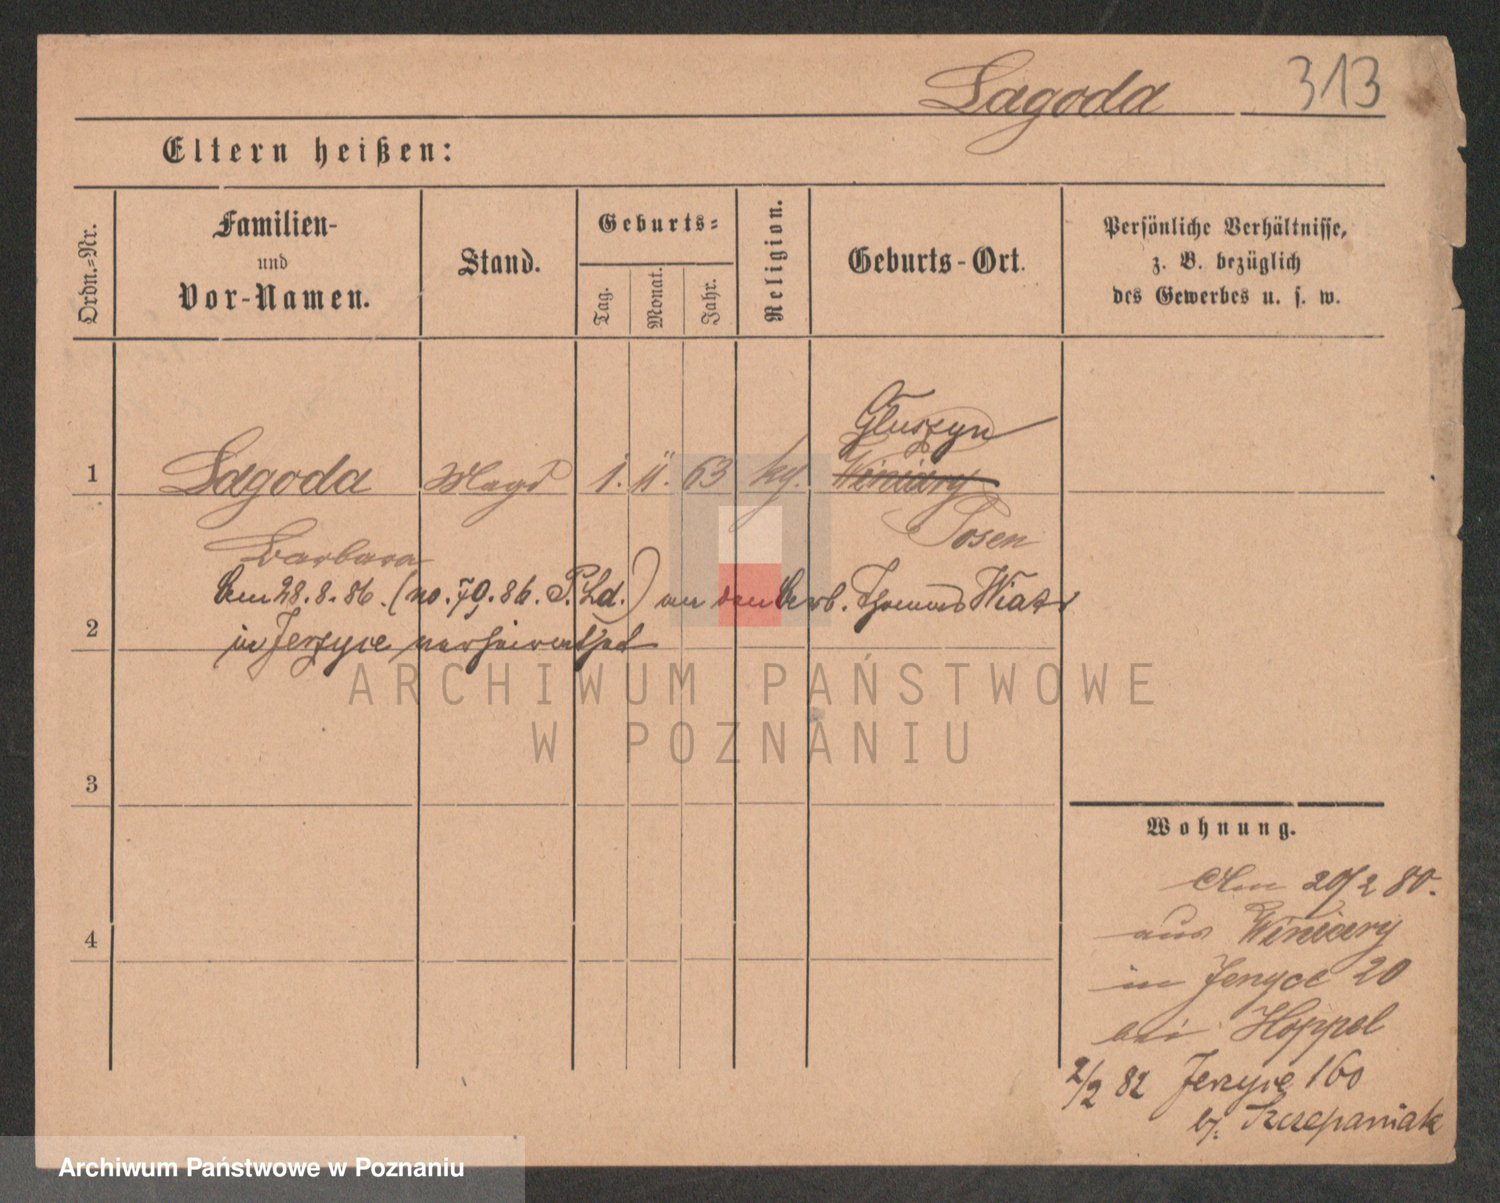 Lagoda 313
Eltern heißen:
Ordn.-Nr.
Familien-
und
Vor-Namen.
Stand.
Geburts-
Tag.
Monat.
Jahr.
Religion.
Geburts-Ort.
Persönliche Verhältnisse,
z. B. bezüglich
des Gewerbes u. s. w.
Gluszyn
1 Lagoda Magd 1. 11. 63 kg. Winiary
Posen
Barbara
Am 28.8.86. (no. 70.86. P. Ld.) an den Arb. Thomas Wiatr
2
in Jerzyce verheirathet
ARCHIWUM PAŃSTWOWE
W POZNANIU
3
Wohnung.
Am 20/2 80.
aus Winiary
4
in Jerzyce 20
bei Hoppel
2/2 82 Jerzyce 160
b. Szczepaniak
Archiwum Państwowe w Poznaniu